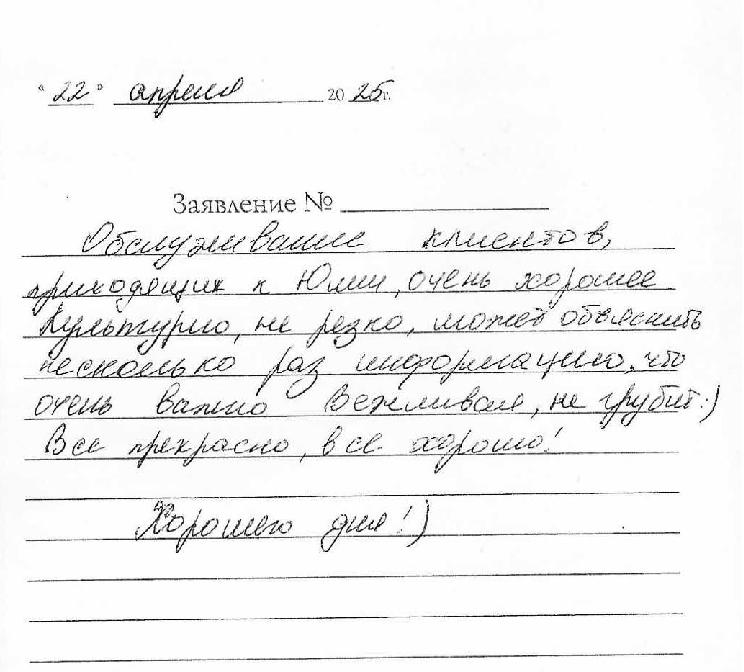 "22" апреля 2025г.
Заявление №
Обслуживание клиентов,
приходящих к Юлии, очень хорошее
Культурно, не резко, может объяснить
несколько раз информацию, что
очень важно Вежливая, не грубит:)
Все прекрасно, все хорошо!
Хорошего дня!)